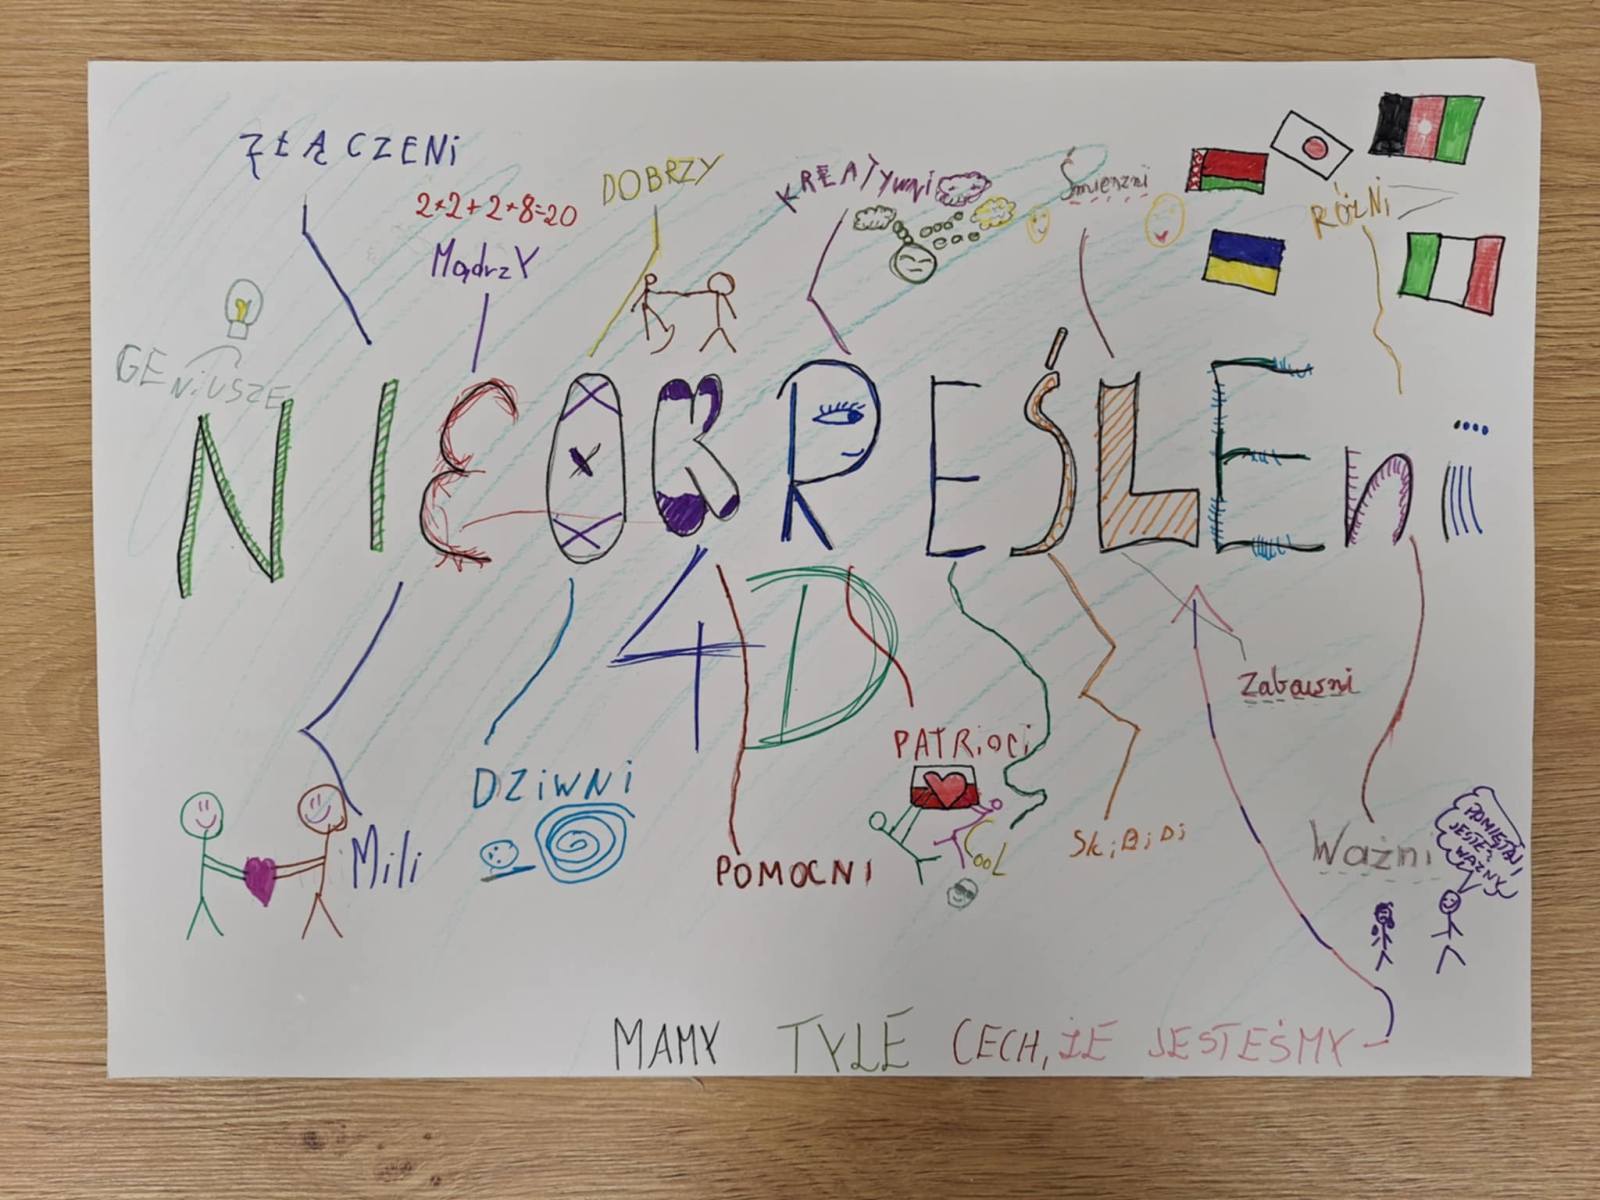 ZŁĄCZENi
2*2+2*8=20
MądrzY
DOBRZY
KREATYwni
Śmieszni
RÓŻNi
GENiUSZE
NIEOKREŚLEni
4D
Zabawni
PATRiOCi
DZiWNi
Mili
POMOCNi
COOL
SkiBiDi
Ważni
POMIĘTAJ
JESTEŚ
WAŻNY
MAMY TYLE CECH, ŻE JESTEŚMY